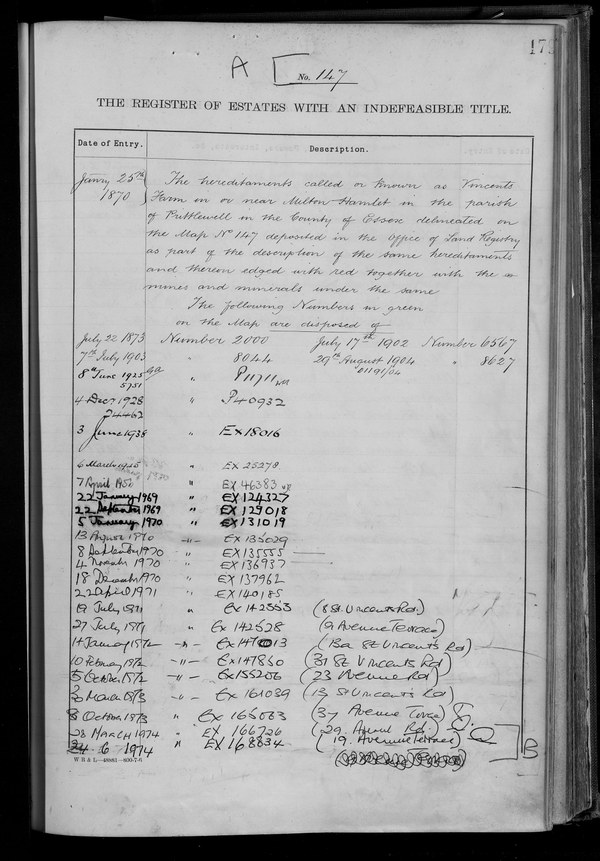 175
A
No. 147
THE REGISTER OF ESTATES WITH AN INDEFEASIBLE TITLE.
Date of Entry. Description.
Janry 25th 1870 The hereditaments called or known as Vincents
Farm on or near Milton Hamlet in the parish
of Prittlewell in the County of Essex delineated on
the Map No 147 deposited in the Office of Land Registry
as part of the description of the same hereditaments
and thereon edged with red together with the
mines and minerals under the same
The following Numbers in green
on the Map are disposed of
July 22 1873 Number 2000 July 17th 1902 Number 6567
7th July 1903 " 8044 29th August 1904 " 8627
01191/04
8th June 1925 " P11711
5751
4 Decr 1928 " P40932
24462
3 June 1938 " EX18016
6 March 1945 " EX 25278
7 April 1952 " EX 46383
22 January 1969 " EX 124327
22 September 1969 " EX 129018
5 January 1970 " EX 131019
13 August 1970 -"- EX 135029
8 September 1970 " EX 135555
4 November 1970 " EX 136937
18 December 1970 " EX 137962
22 April 1971 " EX 140185
19 July 1971 " EX 142353 (8 St. Vincents Rd.)
27 July 1971 " EX 142528 (9 Avenue Terrace)
14 January 1972 -"- EX 147013 (13a St Vincent's Rd)
10 February 1972 -"- EX 147850 (31 St Vincents Rd)
5 October 1972 -"- EX 155206 (23 Avenue Rd)
March 1973 " EX 161039 (13 St Vincents Rd)
8 October 1973 " EX 165063 (37 Avenue Terrace)
28 March 1974 " EX 166726 (29 Rd.)
24 6 1974 " EX 168834 (19 Avenue Terrace)
B
W B & L—49661—800-7-6